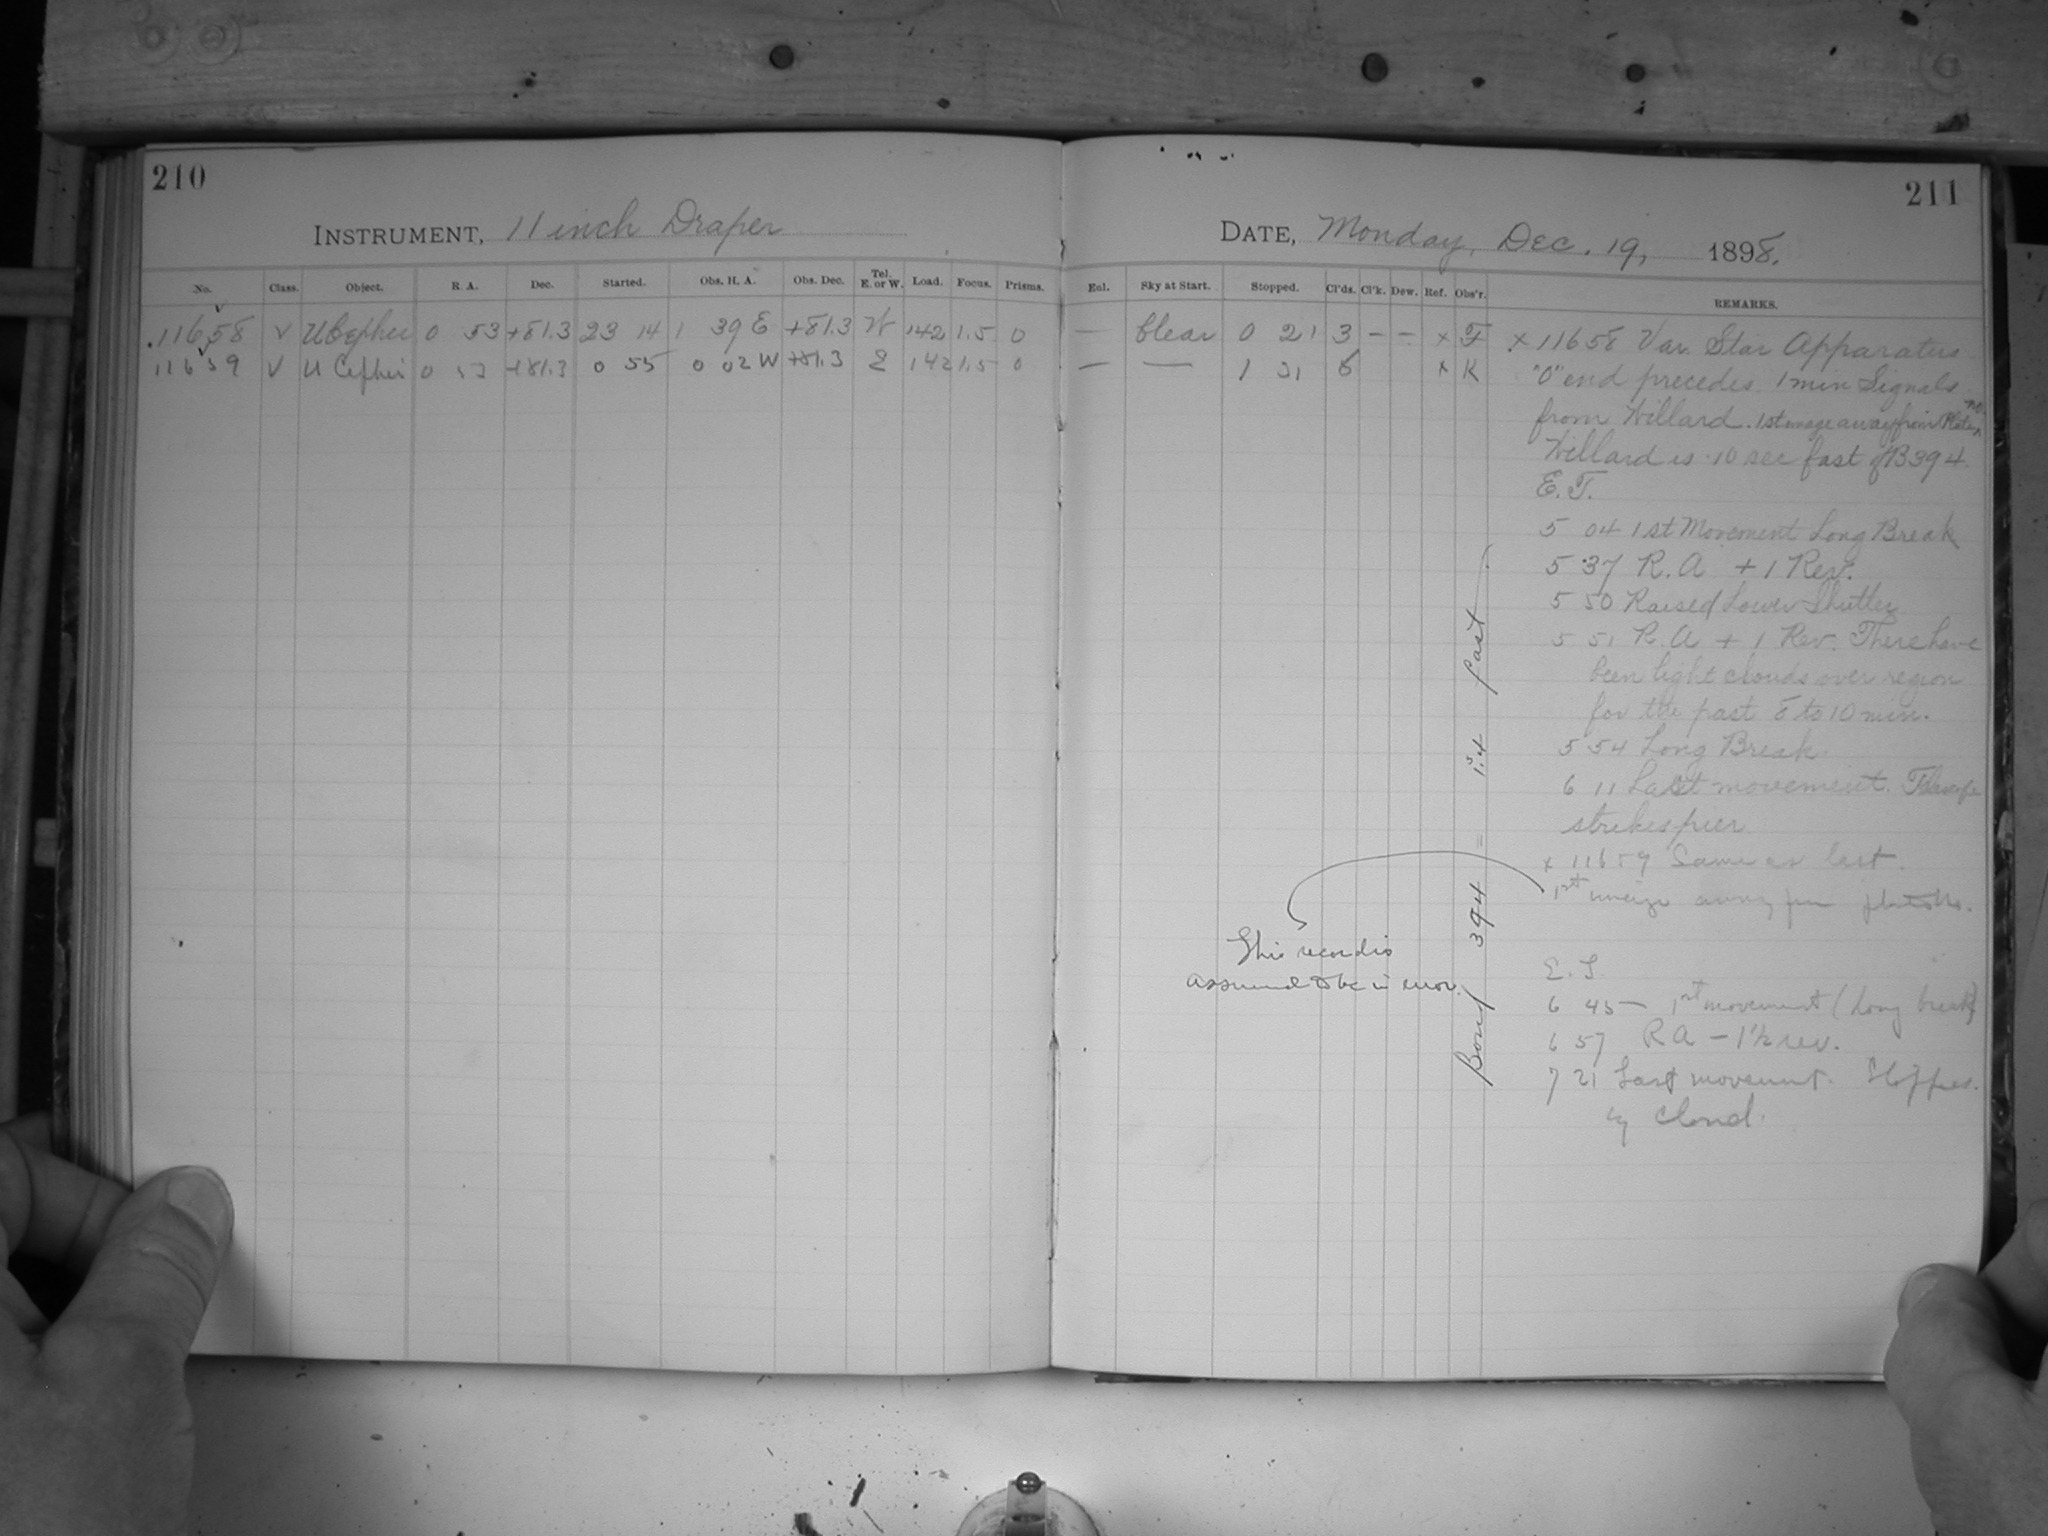 210
INSTRUMENT, 11 inch Draper
No. Class. Object. R. A. Dec. Started. Obs. H. A. Obs. Dec. Tel. E. or W. Load. Focus. Prisms.
11658 V U Cephei 0 53 +81.3 23 14 1 39 E +81.3 W 142 1.5 0
11659 V U Cephei 0 53 +81.3 0 55 0 02 W +81.3 E 142 1.5 0
211
DATE, Monday, Dec. 19, 1898.
Sky at Start. Stopped. Cl'ds. Cl'k. Dew. Ref. Obs'r. REMARKS.
— Clear 0 21 3 – – x F
— — 1 31 6 x K
x 11658 Var. Star Apparatus
"O" end precedes. 1 min Signals
from Willard. 1st image away from Plate no.
Willard is 10 sec fast of B394
E. T.
5 04 1st Movement Long Break
5 37 R. A + 1 Rev.
5 50 Raised Lower Shutter
5 51 R. A + 1 Rev. There have
been light clouds over region
for the past 8 to 10 min.
5 54 Long Break.
6 11 Last movement.
strikes pier
x 11659 Same as last.
1st image away from plate No.
E. T.
6 45 — 1st movement (Long break)
6 57 R A – 1½ rev.
7 21 Last movement. Stopped
by cloud.
This record is
assumed to be in error.
Bond 394 = 1.s4 fast